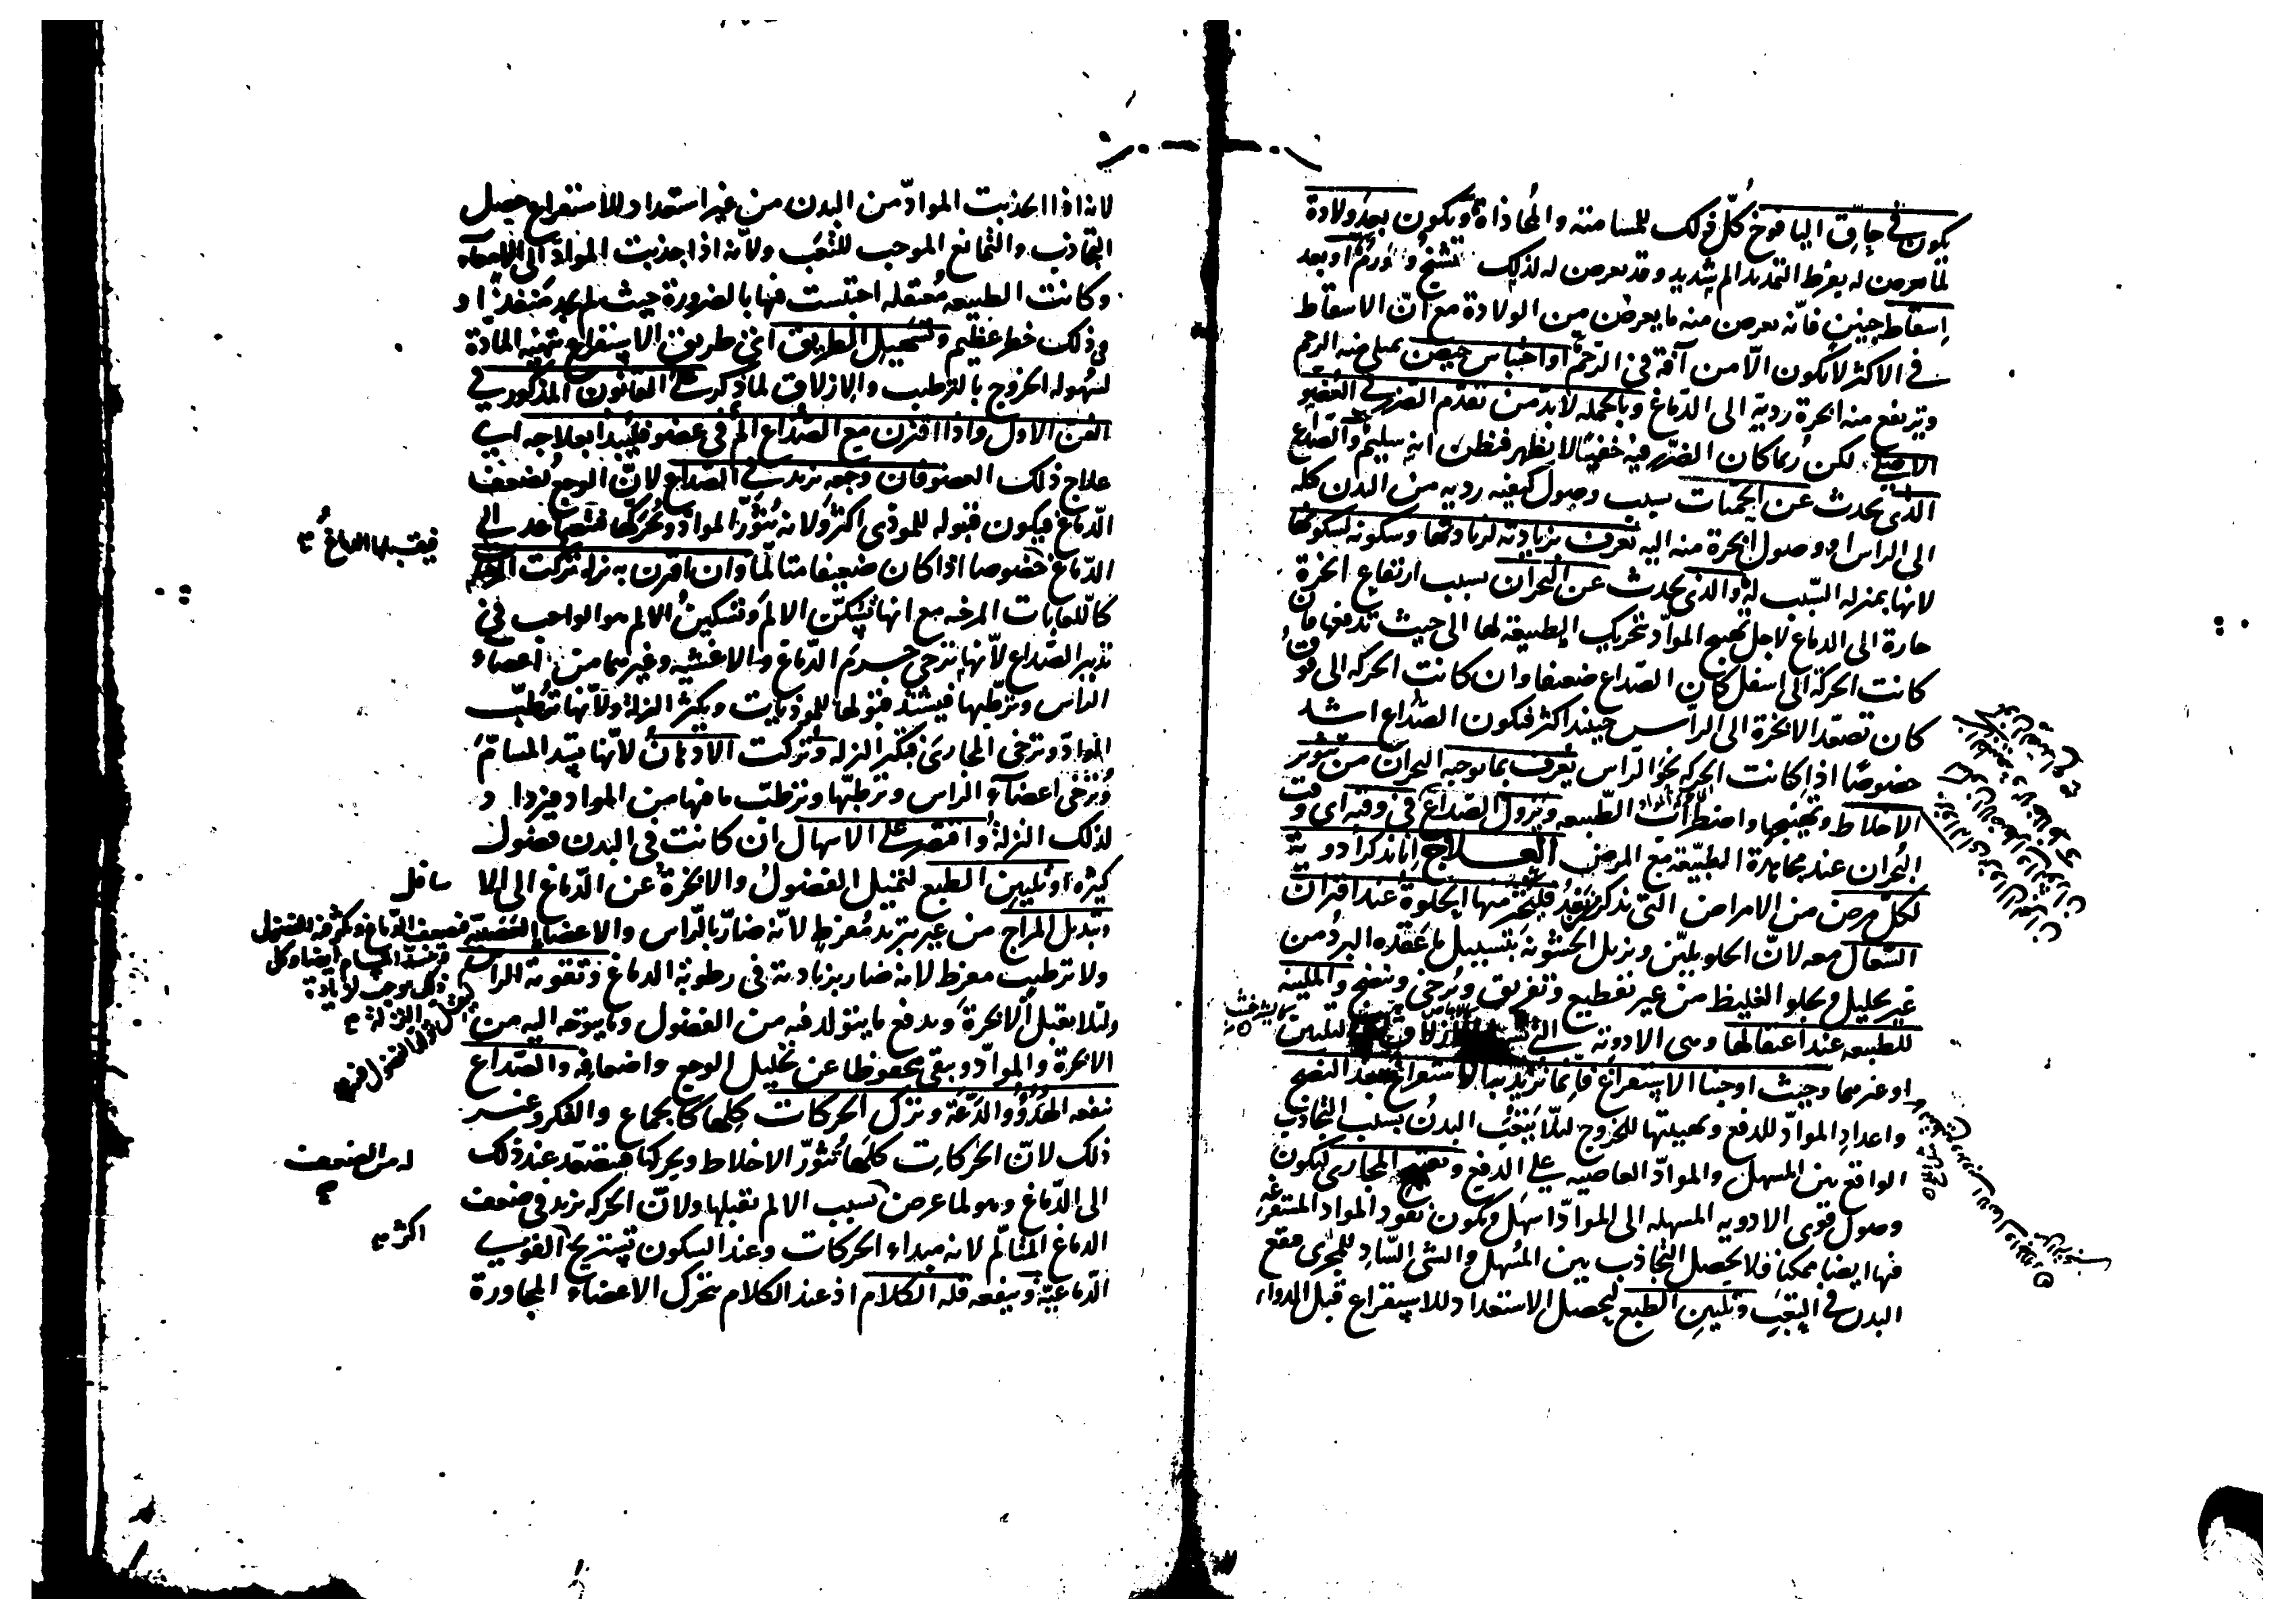 يكون في حاق اليافوخ كل ذلك للمسامتة والمحاذاة ويكون بعد ولادة
لما يعرض له بفرط التمدد الم شديد وقد يعرض له لذلك تشنج و ورم او بعد
اسقاط جنين فانه يعرض منه ما يعرض من الولادة مع ان الاسقاط
في الاكثر لا يكون الا من آفة في الرحم او احتباس حيض يمتلى منه الرحم
وترتفع منه ابخرة ردية الى الدماغ وبالجملة لا بد من تقدم الضرر في العضو
الاصلي لكن ربما كان الضرر فيه خفيا لا يظهر فيظن انه سليم والصداع
الذي يحدث عن الحميات بسبب وصول كيفية ردية من البدن كله
الى الراس او وصول ابخرة منه اليه يعرف بزيادته لزيادتها وسكونه لسكونها
لانها بمنزله السبب له والذي يحدث عن البحران بسبب ارتفاع ابخرة
حارة الى الدماغ لاجل تهيج المواد بتحريك الطبيعة لها الى حيث تدفعها فان
كانت الحركة الى اسفل كان الصداع ضعيفا وان كانت الحركه الى فوق
كان تصعد الابخرة الى الراس حينئذ اكثر فيكون الصداع اشد
خصوصا اذا كانت الحركه نحو الراس يعرف بما يوجبه البحران من تثوير
الاخلاط وتهيجها واضطراب الطبيعه ويزول الصداع في وقته اى وقت
البحران عند مجاهدة الطبيعة مع المرض العلاج انا نذكر ادوية
لكل مرض من الامراض التي نذكر بعد فليختر منها الحلوة عند اقتران
السعال معه لان الحلو يلين ويزيل الخشونة بتسييل ما عقده البرد من
غير تحليل ويجلو الغليظ من غير تقطيع وتفريق ويرخي وينضج والملينة
للطبيعه عند اعتقالها وهي الادوية التي
او غيرهما وحيث اوجبنا الاستفراغ فانما نريد به الاستفراغ بعد النضج
واعداد المواد للدفع وتهييئتها للخروج لئلا يتعب البدن بسبب التجاذب
الواقع بين المسهل والمواد العاصيه على الدفع وتفتيح المجارى ليكون
وصول قوى الادويه المسهله الى المواد اسهل ويكون نفوذ المواد المستفرغة
فيها ايضا ممكنا فلا يحصل التجاذب بين المسهل والشى الساد للمجرى فيقع
البدن في التعب وتليين الطبع ليحصل الاستعداد للاستفراغ قبل الدواء
لانه اذا انجذبت المواد من البدن من غير استعداد للاستفراغ حصل
التجاذب والتمانع الموجب للتعب ولانه اذا جذبت المواد الى الامعاء
وكانت الطبيعه معتقله احتبست فيها بالضرورة حيث لم يجد منفذا و
في ذلك خطر عظيم وتسهيل الطريق اعني طريق الاستفراغ بتهيئه المادة
لسهوله الخروج بالترطيب والازلاق لما ذكر على القانون المذكور في
الفن الاول واذا اقترن مع الصداع الم في عضو فليبدا بعلاجه اي
علاج ذلك العضو فان وجعه يزيد في الصداع لان الوجع يضعف
الدماغ فيكون قبوله للموذى اكثر ولانه يثور المواد ويحركها فتصاعد الى
فيقبلها الدماغ
الدماغ خصوصا اذا كان ضعيفا متالما وان اقترن به نزله تركت
كاللعابات المرخيه مع انها تسكن الالم وتسكين الالم هو الواجب في
تدبير الصداع لانها ترخي جرم الدماغ والاغشيه وغيرهما من اعضاء
الراس وترطبها فيشتد قبولها للموذيات ويكثر النزلة ولانها ترطب
المواد وترخي المجارى فيكثر النزله وتركت الادهان لانها تسد المسام
وترخي اعضاء الراس وترطبها وترطب ما فيها من المواد فيزداد
لذلك النزلة واقتصر على الاسهال ان كانت في البدن فضول
كثيره او تليين الطبع لتميل الفضول والابخرة عن الدماغ الى الاسافل
وتبديل المزاج من غير تبريد مفرط لانه ضار بالراس والاعضاء العصبية فيضعف الدماغ ويكثر فيه الفضول
ولا ترطيب مفرط لانه ضار بزيادته في رطوبة الدماغ وتقوية الراس
ولئلا يقبل الابخرة ويدفع ما يتولد فيه من الفضول وما يتوجه اليه من
الابخرة والمواد ويبقى محفوظا عن تحليل الوجع واضعافه والصداع
ينفعه الهدوء والدعة وترك الحركات كلها كالجماع والفكر وغير
ذلك لان الحركات كلها تثور الاخلاط ويحركها فيتصعد عند ذلك
الى الدماغ وهو لما عرض له من الضعف بسبب الالم يقبلها ولان الحركه تزيد في ضعف
الدماغ المتالم لانه مبداء الحركات وعند السكون تستريح القوى
اكثر
الدماغية وينفعه قلة الكلام اذ عند الكلام تتحرك الاعضاء المجاورة